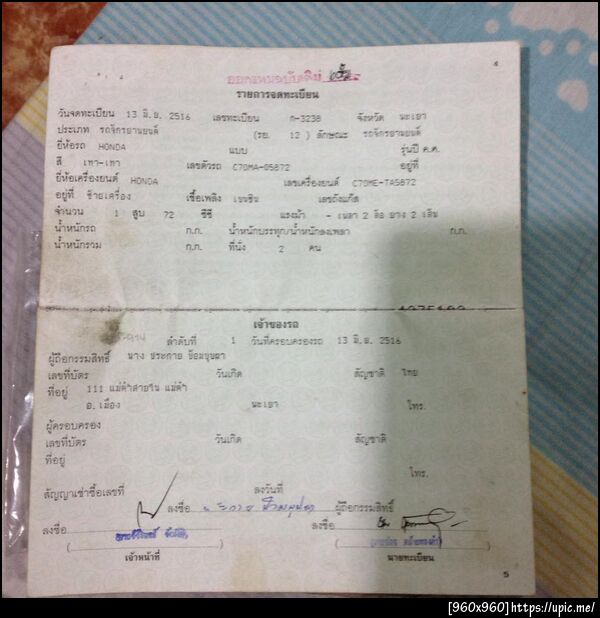 4
ออกแทนฉบับเดิม
รายการจดทะเบียน
วันจดทะเบียน 13 มิ.ย. 2516 เลขทะเบียน ก-3238 จังหวัด พะเยา
ประเภท รถจักรยานยนต์ (รย. 12 ) ลักษณะ รถจักรยานยนต์
ยี่ห้อรถ HONDA แบบ รุ่นปี ค.ศ.
สี เทา-เทา เลขตัวรถ C70MA-05872 อยู่ที่
ยี่ห้อเครื่องยนต์ HONDA เลขเครื่องยนต์ C70ME-TA5872
อยู่ที่ ซ้ายเครื่อง เชื้อเพลิง เบนซิน เลขถังแก๊ส
จำนวน 1 สูบ 72 ซีซี แรงม้า - เพลา 2 ล้อ ยาง 2 เส้น
น้ำหนักรถ ก.ก. น้ำหนักบรรทุก/น้ำหนักลงเพลา ก.ก.
น้ำหนักรวม ก.ก. ที่นั่ง 2 คน
เจ้าของรถ
ลำดับที่ 1 วันที่ครอบครองรถ 13 มิ.ย. 2516
ผู้ถือกรรมสิทธิ์ นาง ประกาย
เลขที่บัตร วันเกิด สัญชาติ ไทย
ที่อยู่ 111 แม่ต๋ำสายใน แม่ต๋ำ
อ.เมือง พะเยา โทร.
ผู้ครอบครอง
เลขที่บัตร วันเกิด สัญชาติ
ที่อยู่
โทร.
สัญญาเช่าซื้อเลขที่ ลงวันที่
ลงชื่อ ผู้ถือกรรมสิทธิ์
ลงชื่อ ลงชื่อ
( ) ( )
เจ้าหน้าที่ นายทะเบียน
5
[960x960]https://upic.me/